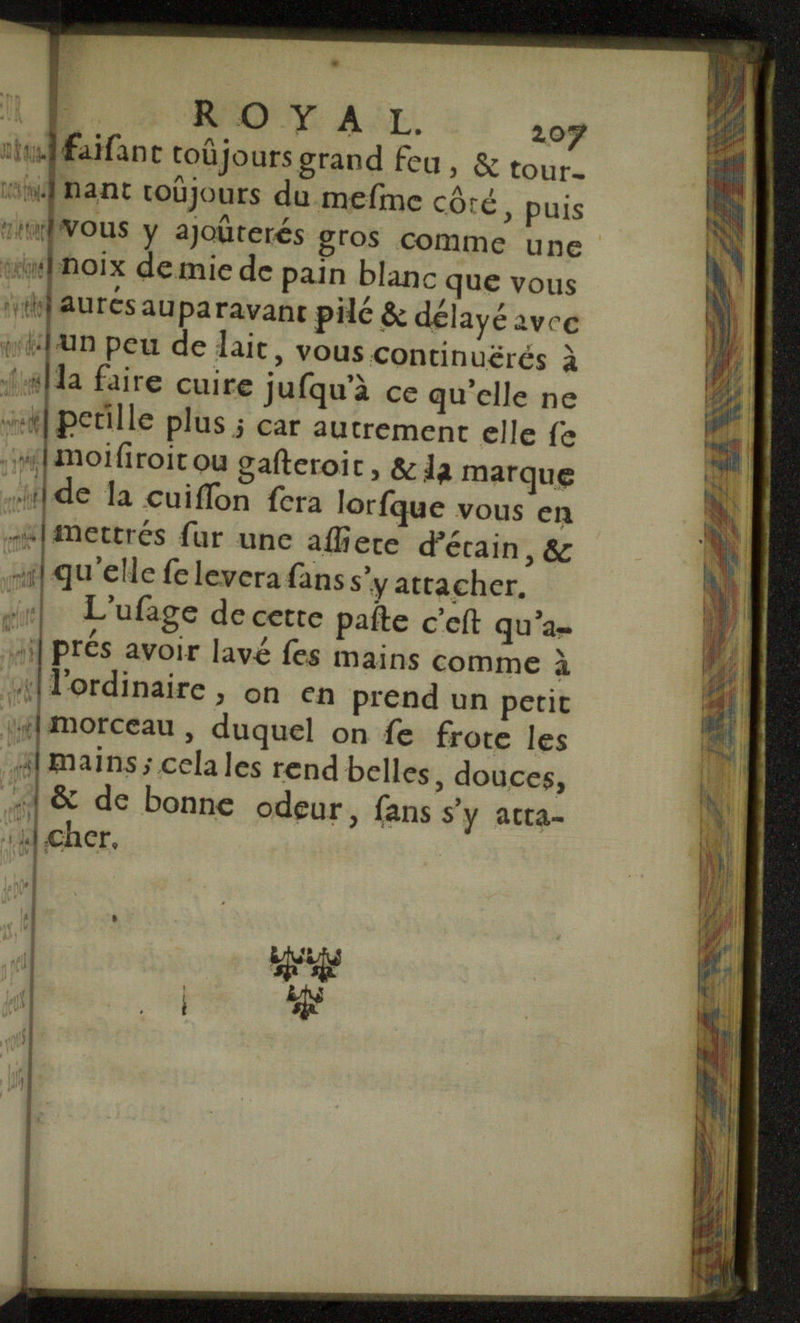 ROYAL. 207
faiſant toûjours grand feu, & tour-
nant toûjours du meſme côté, puis
vous y ajoûterés gros comme une
noix demie de pain blanc que vous
aurés auparavant pilé & délayé avec
un peu de lait, vous continuërés à
la faire cuire juſqu'à ce qu'elle ne
petille plus ; car autrement elle ſe
moiſiroit ou gaſteroit, & la marque
de la cuiſſon ſera lorſque vous en
mettrés ſur une aſſiete d'étain, &
qu'elle ſe levera ſans s'y attacher.
L'uſage de cette paſte c'eſt qu'a-
prés avoir lavé ſes mains comme à
l'ordinaire, on en prend un petit
morceau, duquel on ſe frote les
mains ; cela les rend belles, douces,
& de bonne odeur, ſans s'y atta-
cher.